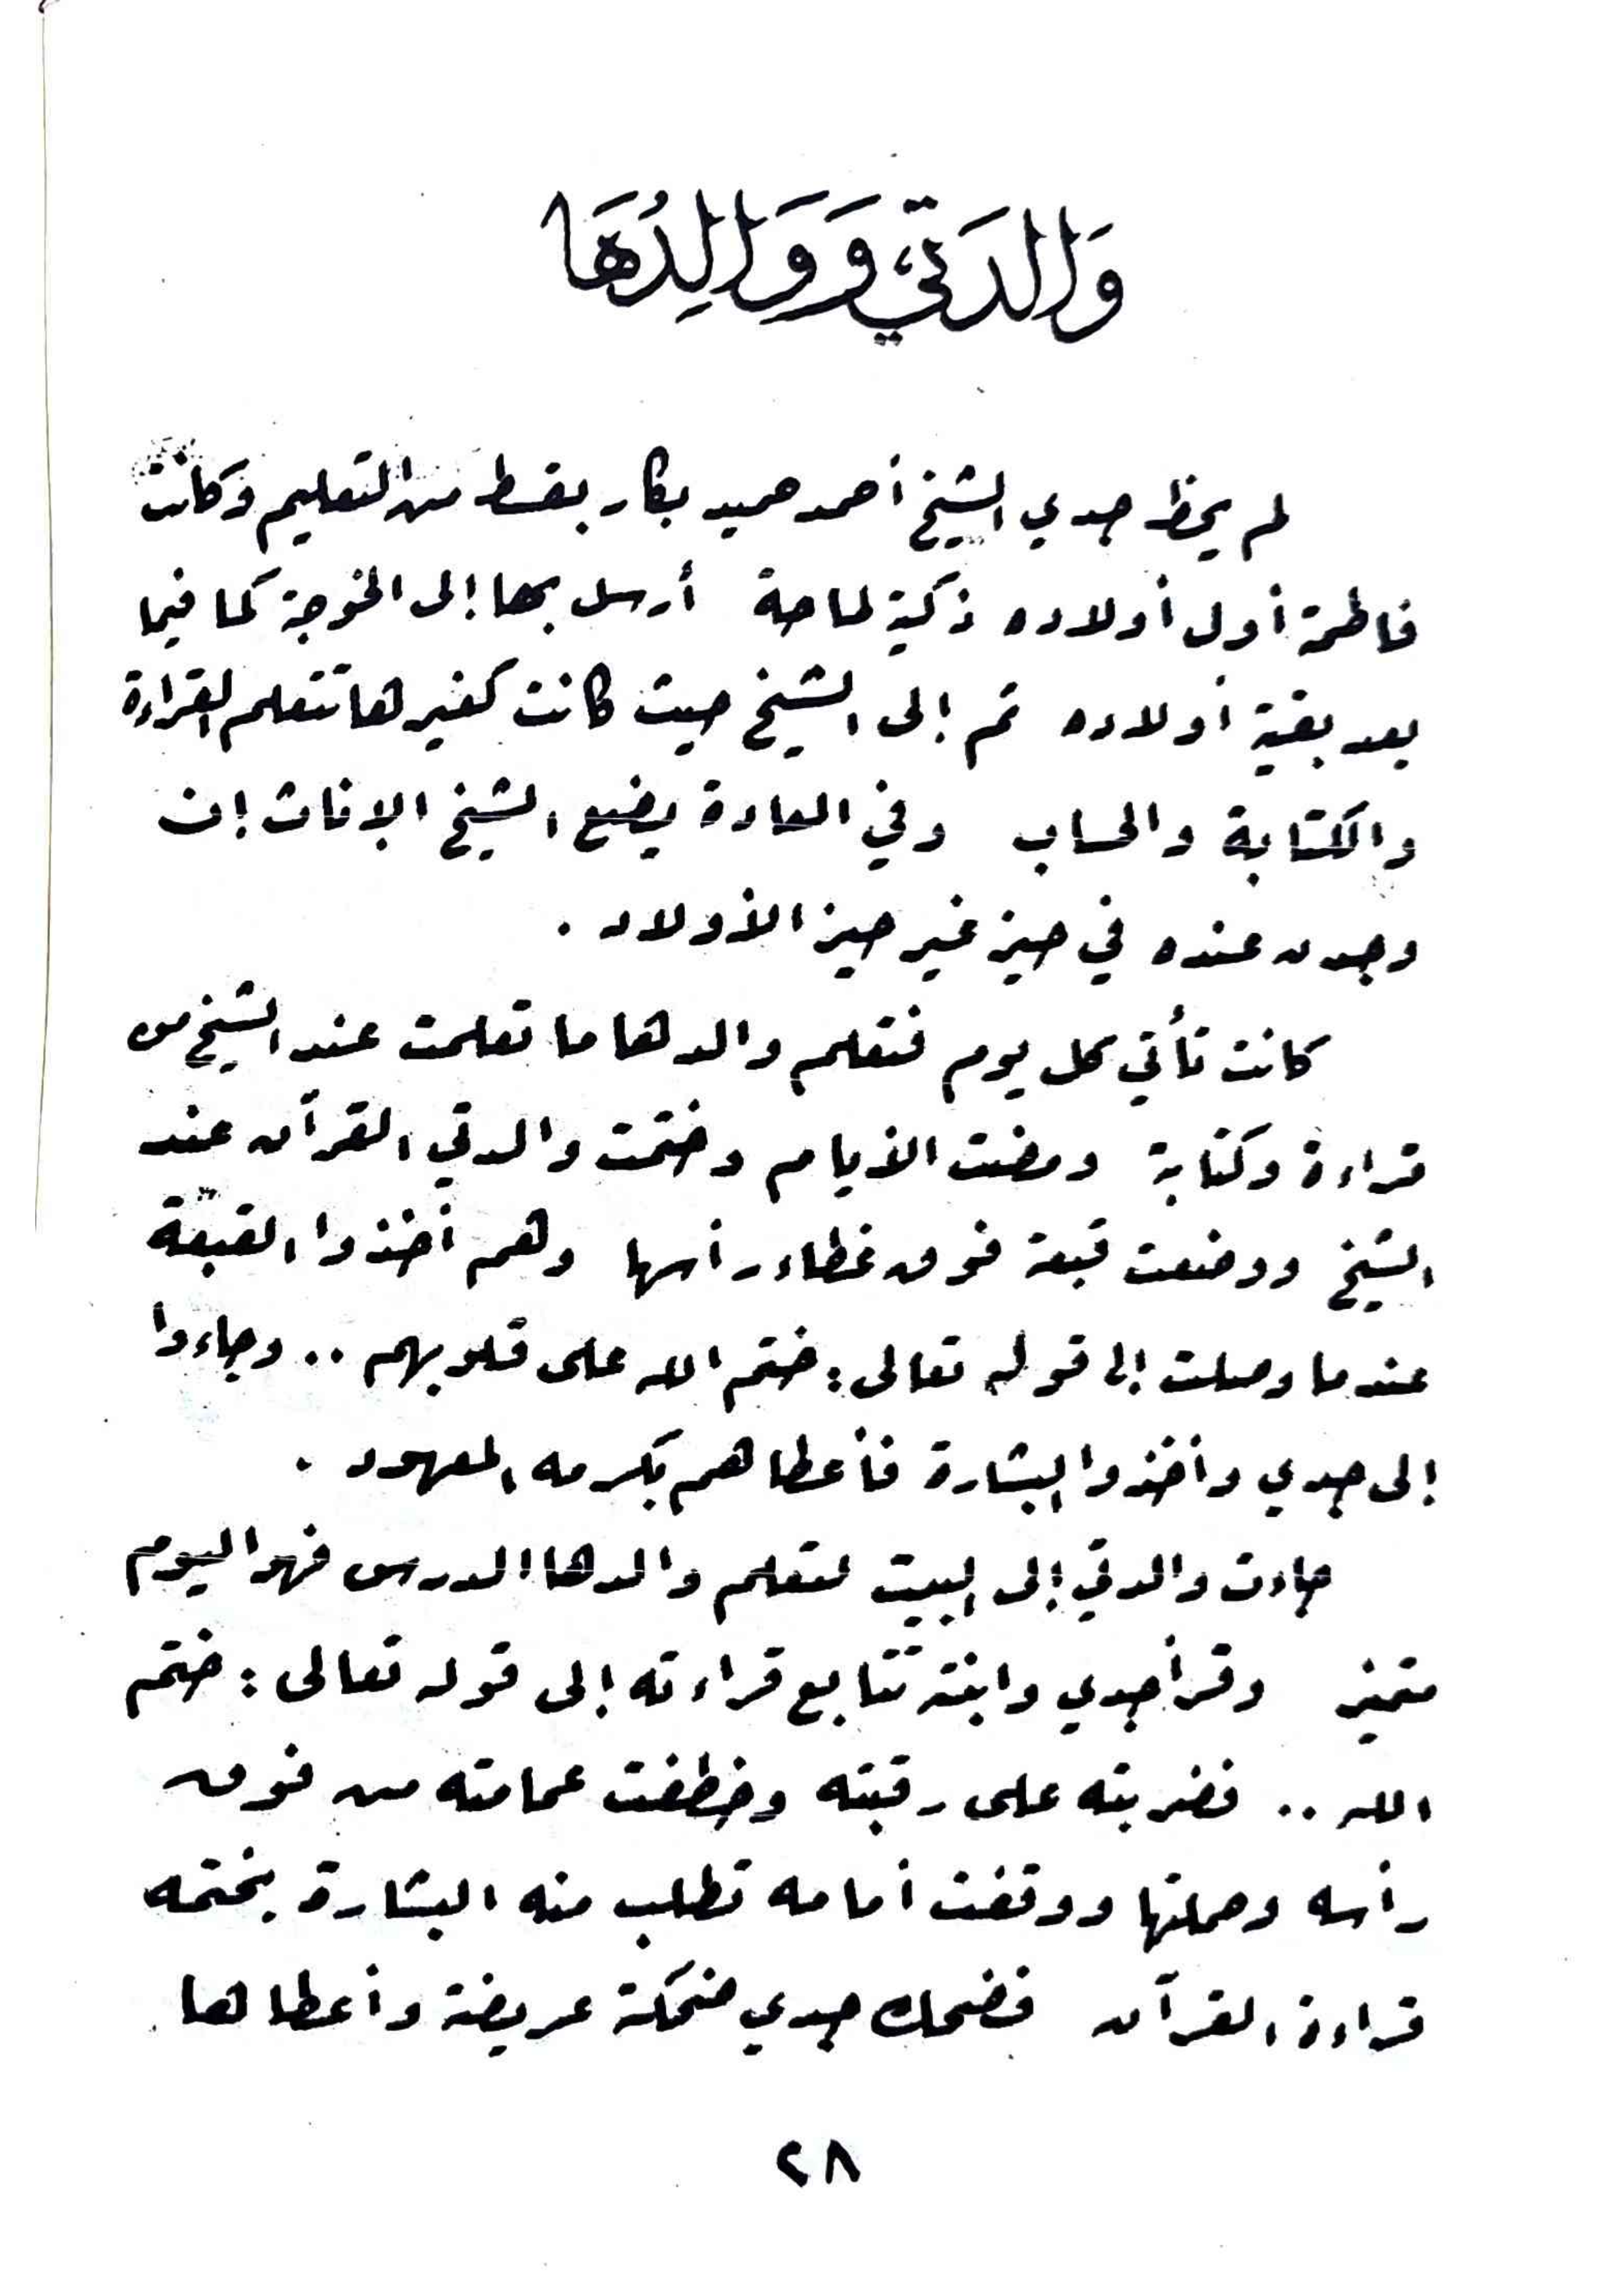 وَالدَتي وَوَالِدُهَا
لم يحظ جدي الشيخ أحمد حميد بكار بقسط من التعليم وكانت
فاطمة أول أولاده ذكية لماحة أرسل بها إلى الخوجة كما فيما
بعد بقية أولاده ثم إلى الشيخ حيث كانت كغيرها تتعلم القراءة
والكتابة والحساب وفي العادة يضع الشيخ الاناث إن
وجدن عنده في حيز غير حيز الأولاد .
كانت تأتي كل يوم فتعلم والدها ما تعلمت عند الشيخ من
قراءة وكتابة ومضت الأيام وختمت والدتي القرآن عند
الشيخ ووضعت قبعة فوق غطاء رأسها وهم أخذوا القبعة
عندما وصلت إلى قوله تعالى : ختم الله على قلوبهم .. وجاءوا
إلى جدي وأخذوا البشارة فأعطاهم بكرمه المعهود .
جاءت والدتي إلى البيت لتعلم والدها الدرس فهو اليوم
متميز وقرأ جدي وابنته تتابع قراءته إلى قوله تعالى : ختم
الله .. فضربته على رقبته وخطفت عمامته من فوق
رأسه وحملتها ووقفت أمامه تطلب منه البشارة بختمه
قراءة القرآن فضحك جدي ضحكة عريضة وأعطاها
٢٨